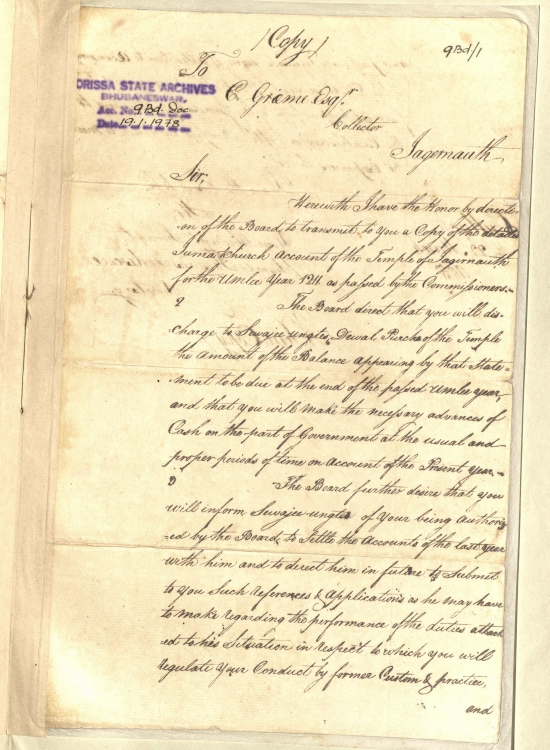 (Copy)
9Bd/1
To
ORISSA STATE ARCHIVES
BHUBANESWAR
Acc. No. 9Bd. Doc
Date 19.1.1978
C. Græme Esqr.
Collector
Jagernauth
Sir,
Herewith I have the Honor by directi-
on of the Board, to transmit to you a Copy of the detailed
Juma & Church Account of the Temple of Jagernauth
for the Umlee Year 1211 as passed by the Commissioners.-
2 The Board direct that you will dis-
charge to Sewajee ungtes, Dewal Purcha of the Temple
the Amount of the Balance appearing by that State-
ment to be due at the end of the passed Umlee year,
and that you will make the necessary advances of
Cash on the part of Government at the usual and
proper periods of time on Account of the Present year.-
3 The Board further desire that you
will inform Sewajee ungtes of Your being Authoriz
-ed by the Board, to Settle the Accounts of the last year
with him and to direct him in future to Submit
to you Such references & Applications as he may have
to make regarding the performance of the duties attach
ed to his Situation in respect to which you will
regulate Your Conduct by former Custom & practice,
and